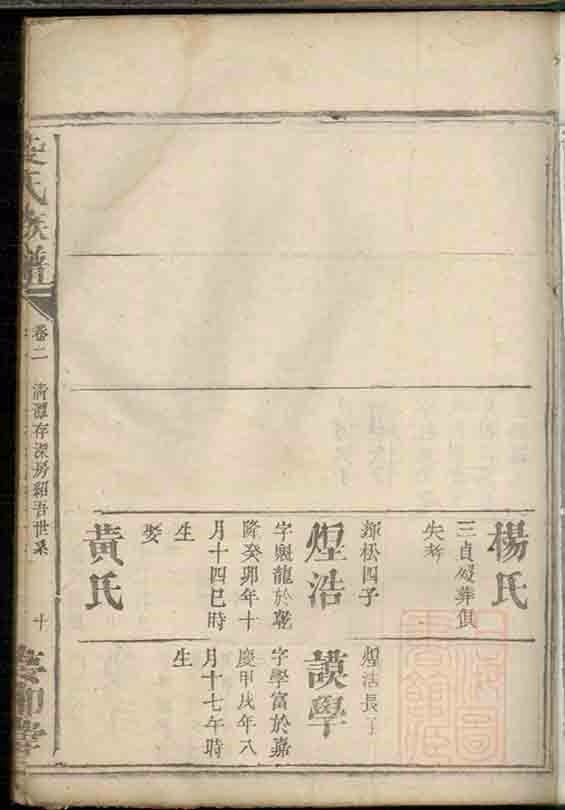 楊氏
三貞歿葬俱
失考
輝松四子
煋浩
字興龍於乾
隆癸卯年十
月十四巳時
生
娶
黃氏
煋浩長子
謨學
字學富於嘉
慶甲戌年八
月十七午時
生
氏族譜
卷二
清潭存深房紹吾世系
十